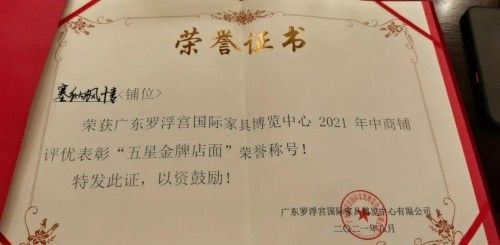 荣誉证书
塞纳风情<铺位>
荣获广东罗浮宫国际家具博览中心 2021 年中商铺
评优表彰“五星金牌店面”荣誉称号！
特发此证，以资鼓励！
广东罗浮宫国际家具博览中心有限公司
二〇二一年八月